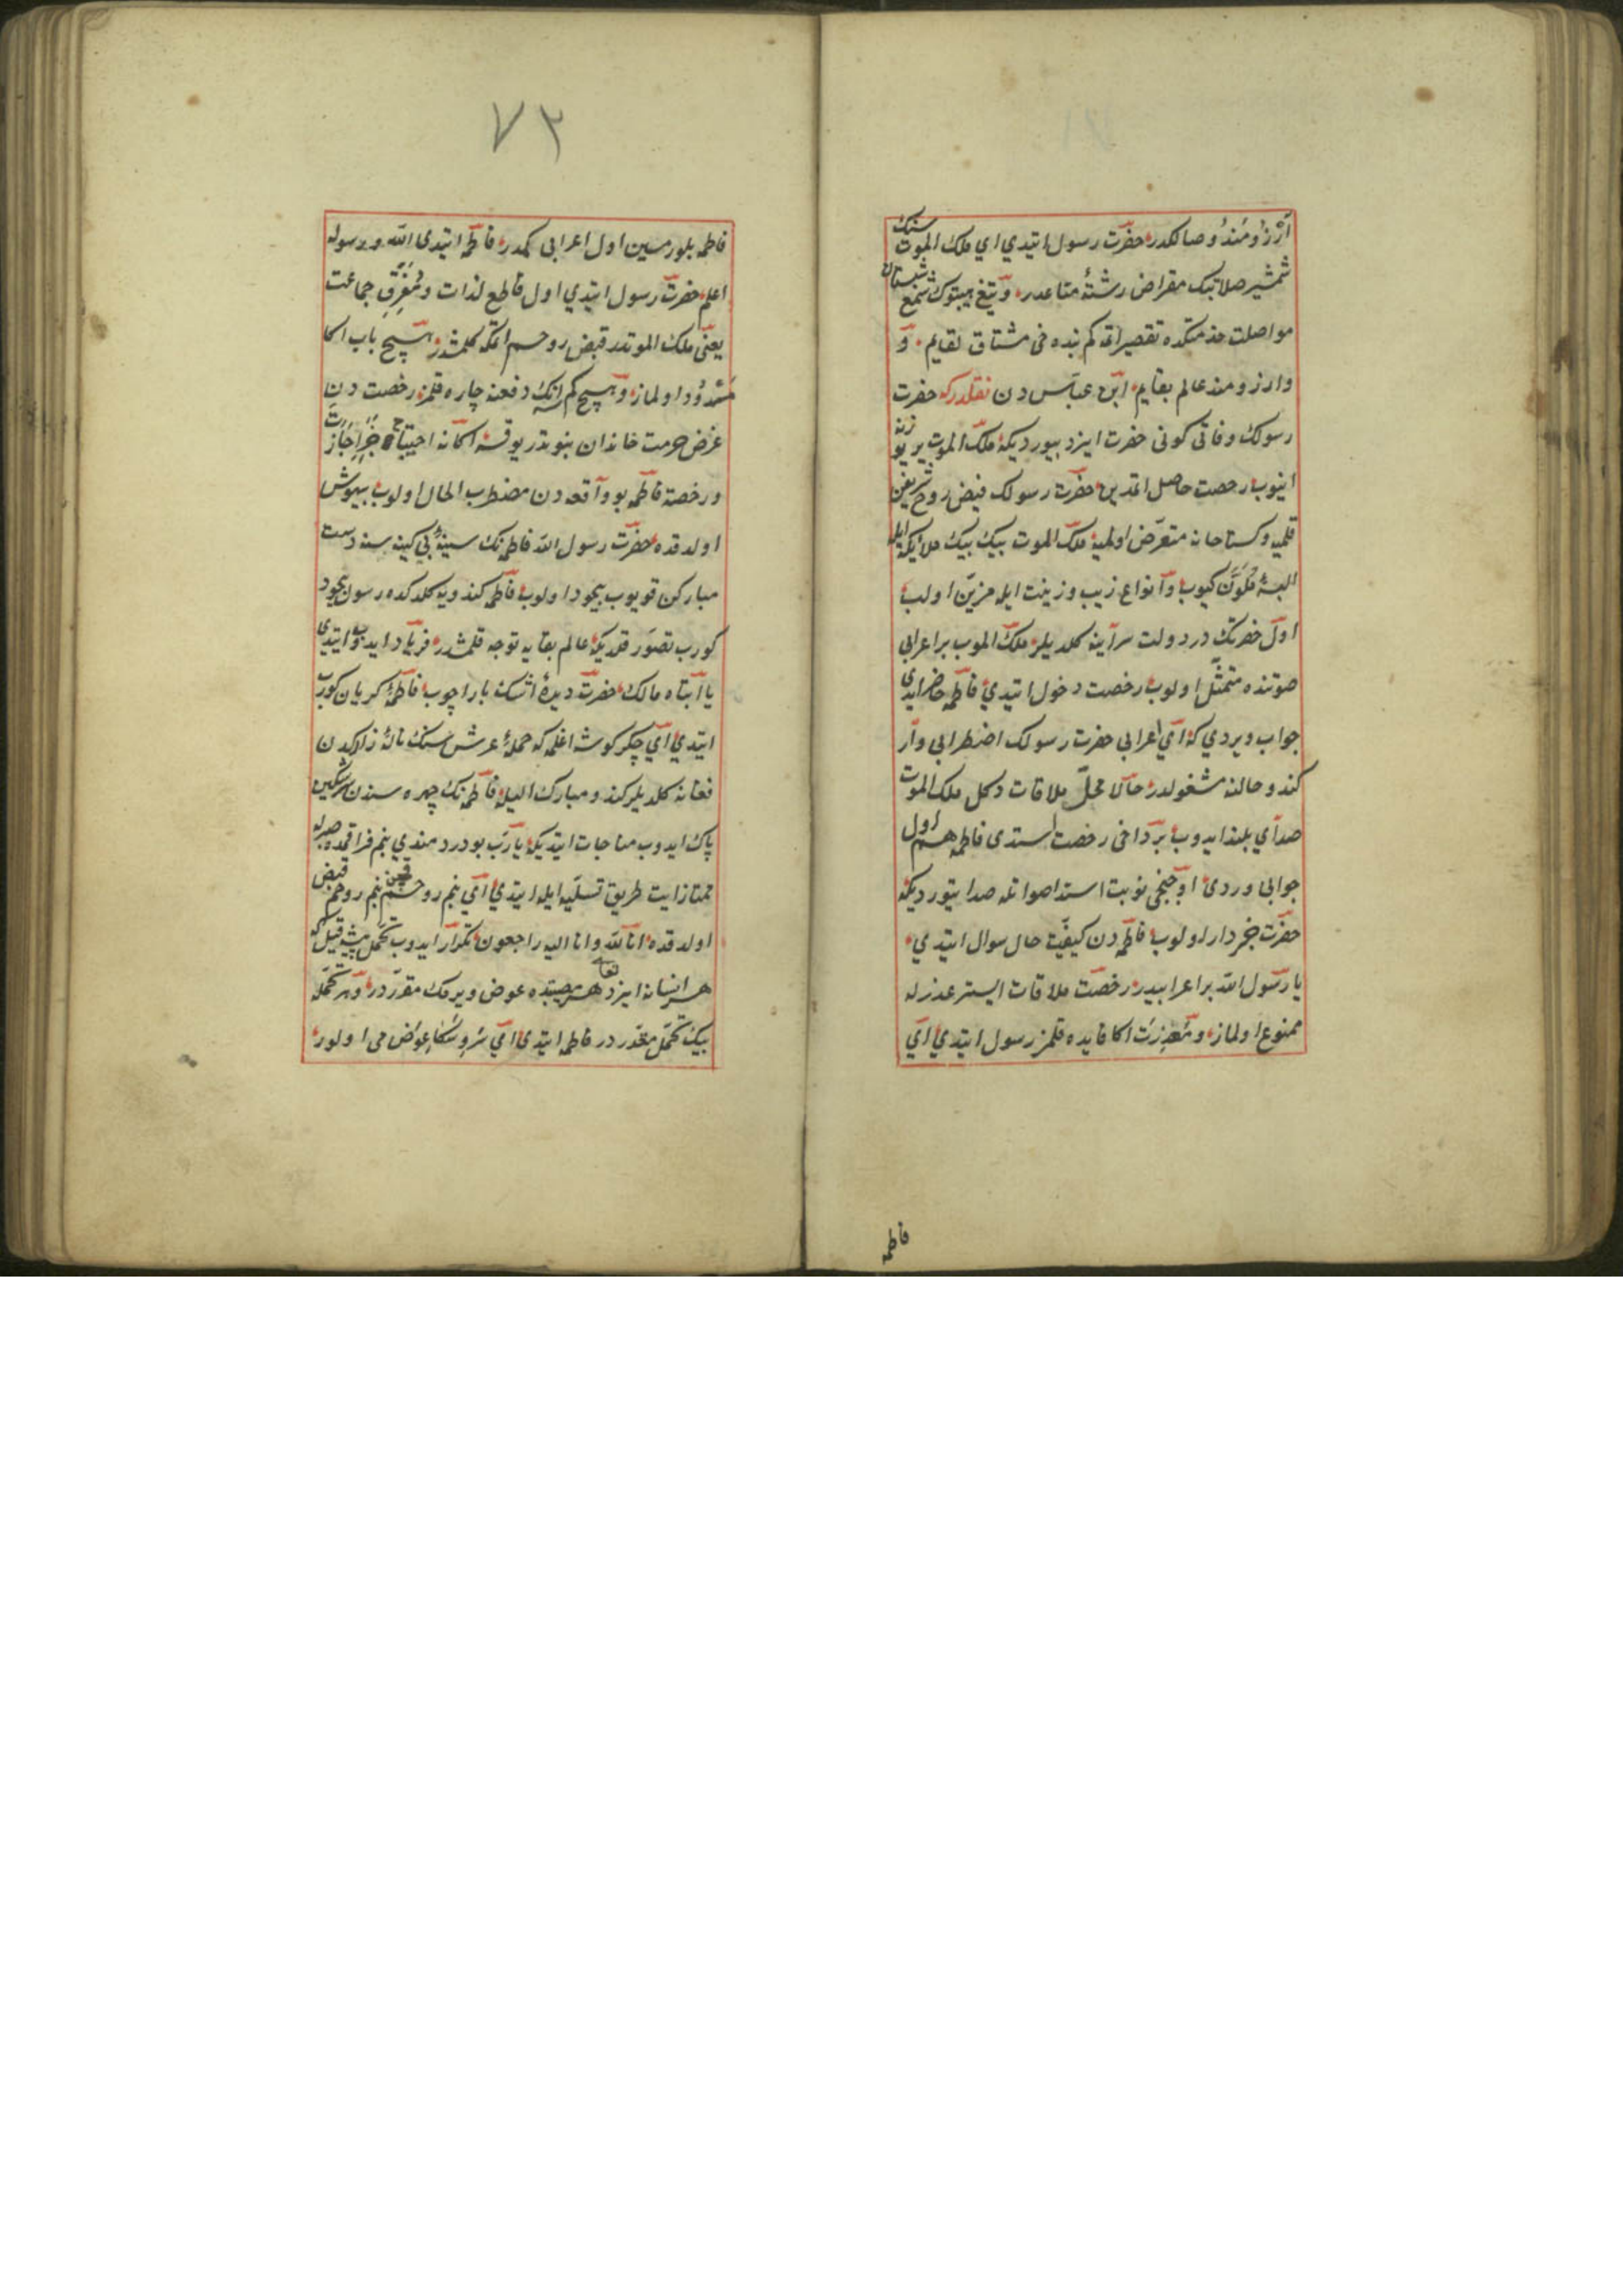 آرزومند وصالكدر حضرت رسول ايتدي اي ملك الموت سنك
شمشير صلابتك مقراض رشتۀ متاعدر و تيغ هيبتوك شمع شبستان
مواصلت خدمتكده تقصير اتمه كم بنده خى مشتاق لقايم و
وارزومند عالم بقايم ابن عباس دن نقلدركه حضرت
رسولك وفاتى كونى حضرت ايزد بيورديكه ملك الموت ير يوزنه
اينوب رخصت حاصل اتمدين حضرت رسولك قبض روح شريفن
قلميه وكستاخانه متعرض اولميه ملك الموت بيك بيك ملائكه ايله
البسۀ ملون كيوب و انواع زيب وزينت ايله مزين اولب
اول حضرتك در دولت سراينه كلديلر ملك الموت بر اعرابى
صوتنده متمثل اولوب رخصت دخول ايتدي فاطمه حاضر ايدي
جواب ويردي كه اي اعرابى حضرت رسولك اضطرابى وار
كندو حالنه مشغولدر حالا محل ملاقات دكل ملك الموت
صداي بلند ايدوب بر داخى رخصت استدى فاطمه هم اول
جوابى وردى اوچنجى نوبت استدا صواتله صدا يتورديكه
حضرت خبردار اولوب فاطمه دن كيفيت حال سوال ايتدي
يا رسول الله بر اعرابيدر رخصت ملاقات ايستر عذرله
ممنوع اولماز و معذرت اكا فايده قلمز رسول ايتدي اي
فاطمه
٧٣
فاطمه بلورمسين اول اعرابى كمدر فاطمه ايتدى الله ورسوله
اعلم حضرت رسول ايتدي اول قاطع لذات ومفرق جماعت
يعنى ملك الموتدر قبض روحم اتمكه كلمشدر هيچ باب اكا
مسدود اولماز و هيچ كم انك دفعنه چاره قلمز رخصت دن
غرض حرمت خاندان نبوتدر يوقسه اكا نه احتياج اجازت
ورخصة فاطمه بو واقعه دن مضطرب الحال اولوب بيهوش
اولدقده حضرت رسول الله فاطمه نك سينۀ بى كينه سنه دست
مباركن قويوب بيخود اولوب فاطمه كندويه كلدكده رسولى بيخود
كورب تصور قلديكه عالم بقايه توجه قلمشدر فرياد ايدوب ايتدي
يا ابتاه مالك حضرت ديدۀ اشك بار اچوب فاطمه كريان كورب
ايتدي اي جكر كوشه اغلمه كه حملۀ عرش سنك نالۀ زاركدن
فغانه كلديلر كندو مبارك اليله فاطمه نك چهره سندن سرشكين
پاك ايدوب مناجات ايتديكه يارب بو دردمندي بنم فراقمده صبرله
ممتاز ايت طريق تسليه ايله ايتدي اي بنم روحم بنم روحم قبض
اولدقده انا لله وانا اليه راجعون تكرار ايدوب تحمل پيشه قيل كه
هر انسانه ايزد تعالى هر مصيبتده عوض ويرمك مقرردر و هر تحمله
بيك تجمل مقدردر فاطمه ايتدى اي سرور سكا عوض مى اولور